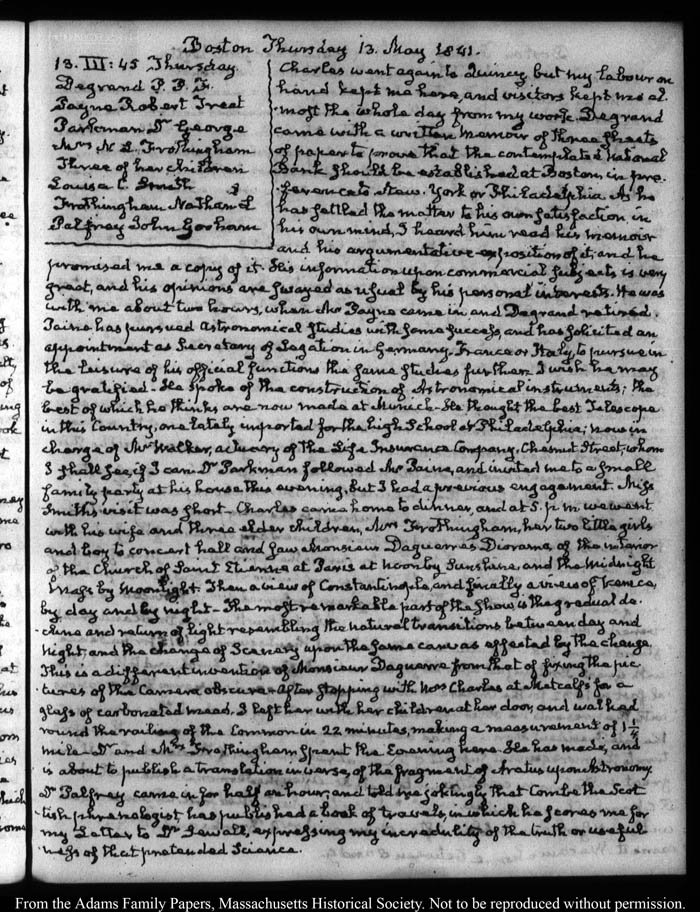 Boston Thursday 13. May 1841.
13. III: 45 Thursday
Degrand P. P. F.
Payne Robert Treat
Parkman Dr George
Mrs N. L. Frothingham
Three of her children
Louisa C. Smith
Frothingham Nathan. L
Palfrey John Gorham
Charles went again to Quincy, but my labour on
hand kept me here, and visitors kept me al-
-most the whole day from my work. Degrand
came with a written memoir of three sheets
of paper to prove that the contemplated national
Bank should be established at Boston, in pre-
-ference to New-York or Philadelphia. As he
has settled the matter to his own satisfaction, in
his own mind, I heard him read his memoir
and his argumentative exposition of it; and he
promised me a copy of it. His information upon commercial subjects is very
great, and his opinions are swayed as usual by his personal interests. He was
with me about two hours, when Mr Payne came in and Degrand retired.
Paine has pursued Astronomical Studies with some success, and has solicited an
appointment as Secretary of Legation in Germany, France or Italy, to pursue in
the leisure of his official functions the same studies further. I wish he may
be gratified. He spoke of the construction of Astronomical instruments; the
best of which he thinks are now made at Munich. He thought the best Telescope
in this Country, one lately imported for the high School at Philadelphia; now in
charge of Mr Walker, actuary of the Life Insurance Company, Chesnut Street, whom
I shall see, if I can. Dr Parkman followed Mr Paine, and invited me to a small
family party at his house this evening, but I had a previous engagement. Miss
Smith's visit was short. Charles came home to dinner, and at 5. p.m. we went
with his wife and three elder children, Mrs Frothingham, her two little girls
and boy to concert hall and saw Monsieur Daguerre's Diorama, of the interior
of the Church of Saint Etienne at Paris at noon by Sunshine, and the Midnight
Mass by Moonlight. Then a view of Constantinople, and finally a view of Venice,
by day and by night. The most remarkable part of the show is the gradual de-
-cline and return of light resembling the natural transitions between day and
Night, and the change of Scenery upon the same canvas effected by the change.
This is a different invention of Monsieur Daguerre from that of fixing the pic-
tures of the Camera obscura. After stopping with Mrs Charles at Metcalf's for a
glass of carbonated mead, I left her with her children at her door, and walked
round the railing of the Common in 22 minutes, making a measurement of 1 1/4
mile. Dr and Mrs Frothingham spent the Evening here. He has made, and
is about to publish a translation in verse, of the fragment of Aratus upon Astronomy.
Dr Palfrey came in for half an hour; and told me jokingly that Combe the Scot-
tish phrenologist, has published a book of travels, in which he scores me for
my Letter to Dr Sewall, expressing my incredulity of the truth or useful-
-ness of that pretended Science.
From the Adams Family Papers, Massachusetts Historical Society. Not to be reproduced without permission.